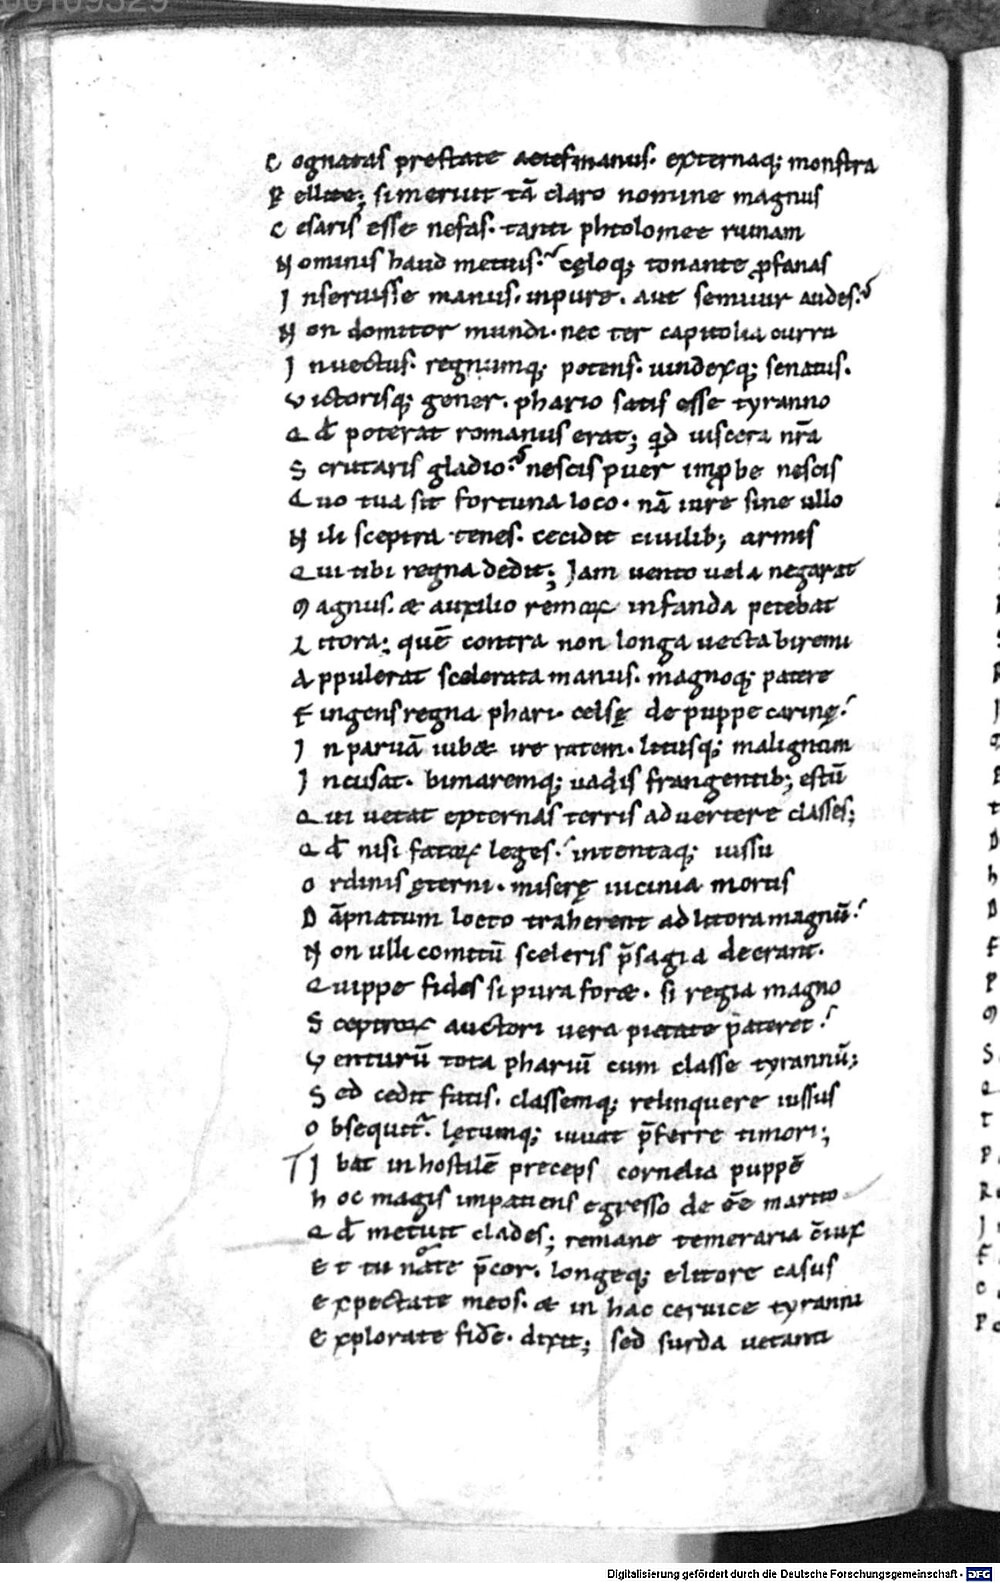 00109329
C ognatas prestate acies manus. externaq; monstra
P ellite; si meruit tā claro nomine magnus
C esaris esse nefas. tanti phtolomee ruinam
N ominis haud metuis. cęloq; tonante ꝓfanas
I nseruisse manus. inpure. aut semiuir audes.
N on domitor mundi. nec ter capitolia curru
I nuectus. regnumq; potens. uindexq; senatus.
V ictorisq; gener. phario satis esse tyranno
Q đ poterat romanus erat; qđ uiscera nr̄a
S crutaris gladio. nescis puer improbe nescis
Q uo tua sit fortuna loco. nā iure sine ullo
N ili sceptra tenes. cecidit ciuilib; armis
Q ui tibi regna dedit; Jam uento uela negarat
M agnus. & auxilio remoꝝ infanda petebat
L ittora; quē contra non longa uecta biremi
A ppulerat scelerata manus. magnoq; patere
F ingens regna phari. celsę de puppe carinę.
I n paruā iub& ire ratem. litusq; malignum
I ncusat. bimaremq; uadis frangentib; estū
Q ui uetat externas terris aduertere classes;
Q đ nisi fatoꝝ leges. intentaq; iussu
O rdinis ęterni. miserę uicinia mortis
D āpnatum loeto traherent ad litora magnū.
N on ulli comitū sceleris p̄sagia deerant.
Q uippe fides si pura for&. si regia magno
S ceptroꝝ auctori uera pietate pateret.
V enturū tota phariū cum classe tyrannū;
S ed cedit fatis. classemq; relinquere iussus
O bsequit̄. lętumq; iuuat p̄ferre timori;
I bat in hostilē preceps cornelia puppē
H oc magis impatiens egresso de ēē marito
Q đ metuit clades; remane temeraria c̄iux
E t tu nate p̄cor. longeq; elitore casus
E xpectate meos. & in hac ceruice tyranni
E xplorate fidē. dixit; sed surda uetanti
Digitalisierung gefördert durch die Deutsche Forschungsgemeinschaft - DFG